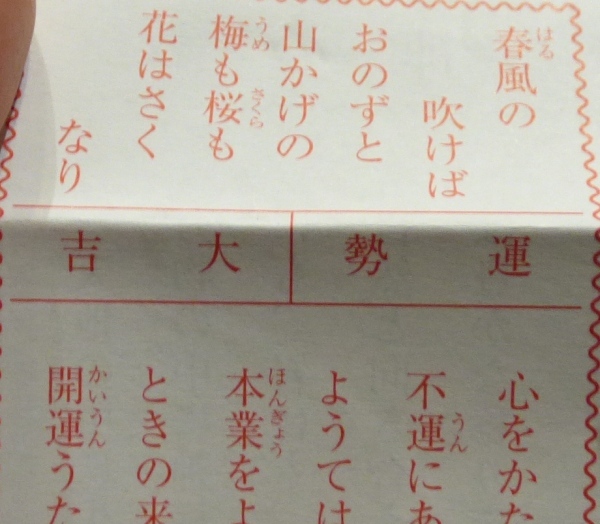 春風の
吹けば
おのずと
山かげの
梅も桜も
花はさく
なり
運勢
大吉
心をかた
不運にあ
ようては
本業をよ
ときの来
開運うた